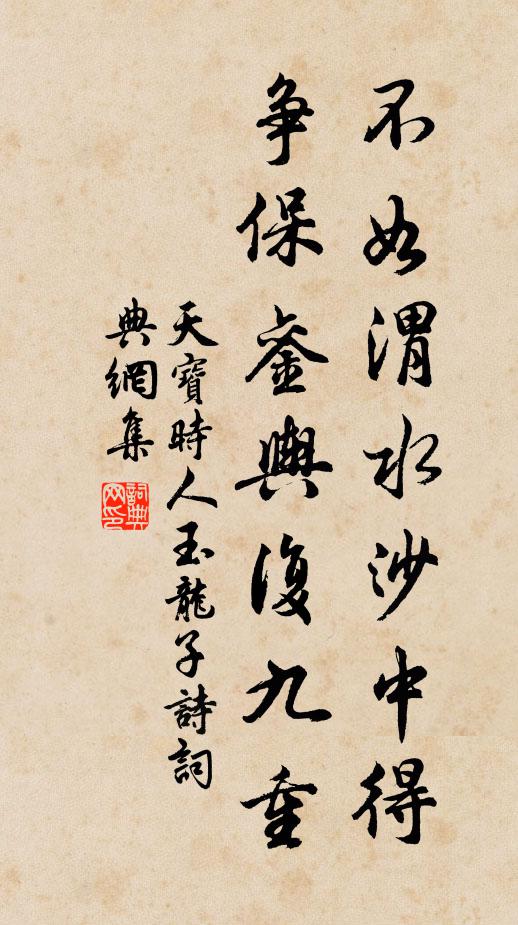 不如渭水沙中得
争保銮輿復九重
天寶時人玉龍子詩詞
典網集
詞典
网印